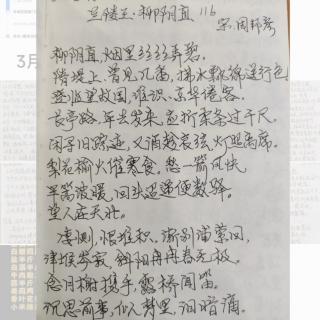 兰陵王·柳阴直 116
宋·周邦彦
柳阴直,烟里丝丝弄碧。
隋堤上,曾见几番,拂水飘绵送行色。
登临望故国,谁识、京华倦客。
长亭路,年去岁来,应折柔条过千尺。
闲寻旧踪迹,又酒趁哀弦,灯照离席。
梨花榆火催寒食。愁一箭风快,
半篙波暖,回头迢递便数驿。
望人在天北。
凄恻,恨堆积。渐别浦萦回,
津堠岑寂,斜阳冉冉春无极。
念月榭携手,露桥闻笛。
沉思前事,似梦里,泪暗滴。
3月